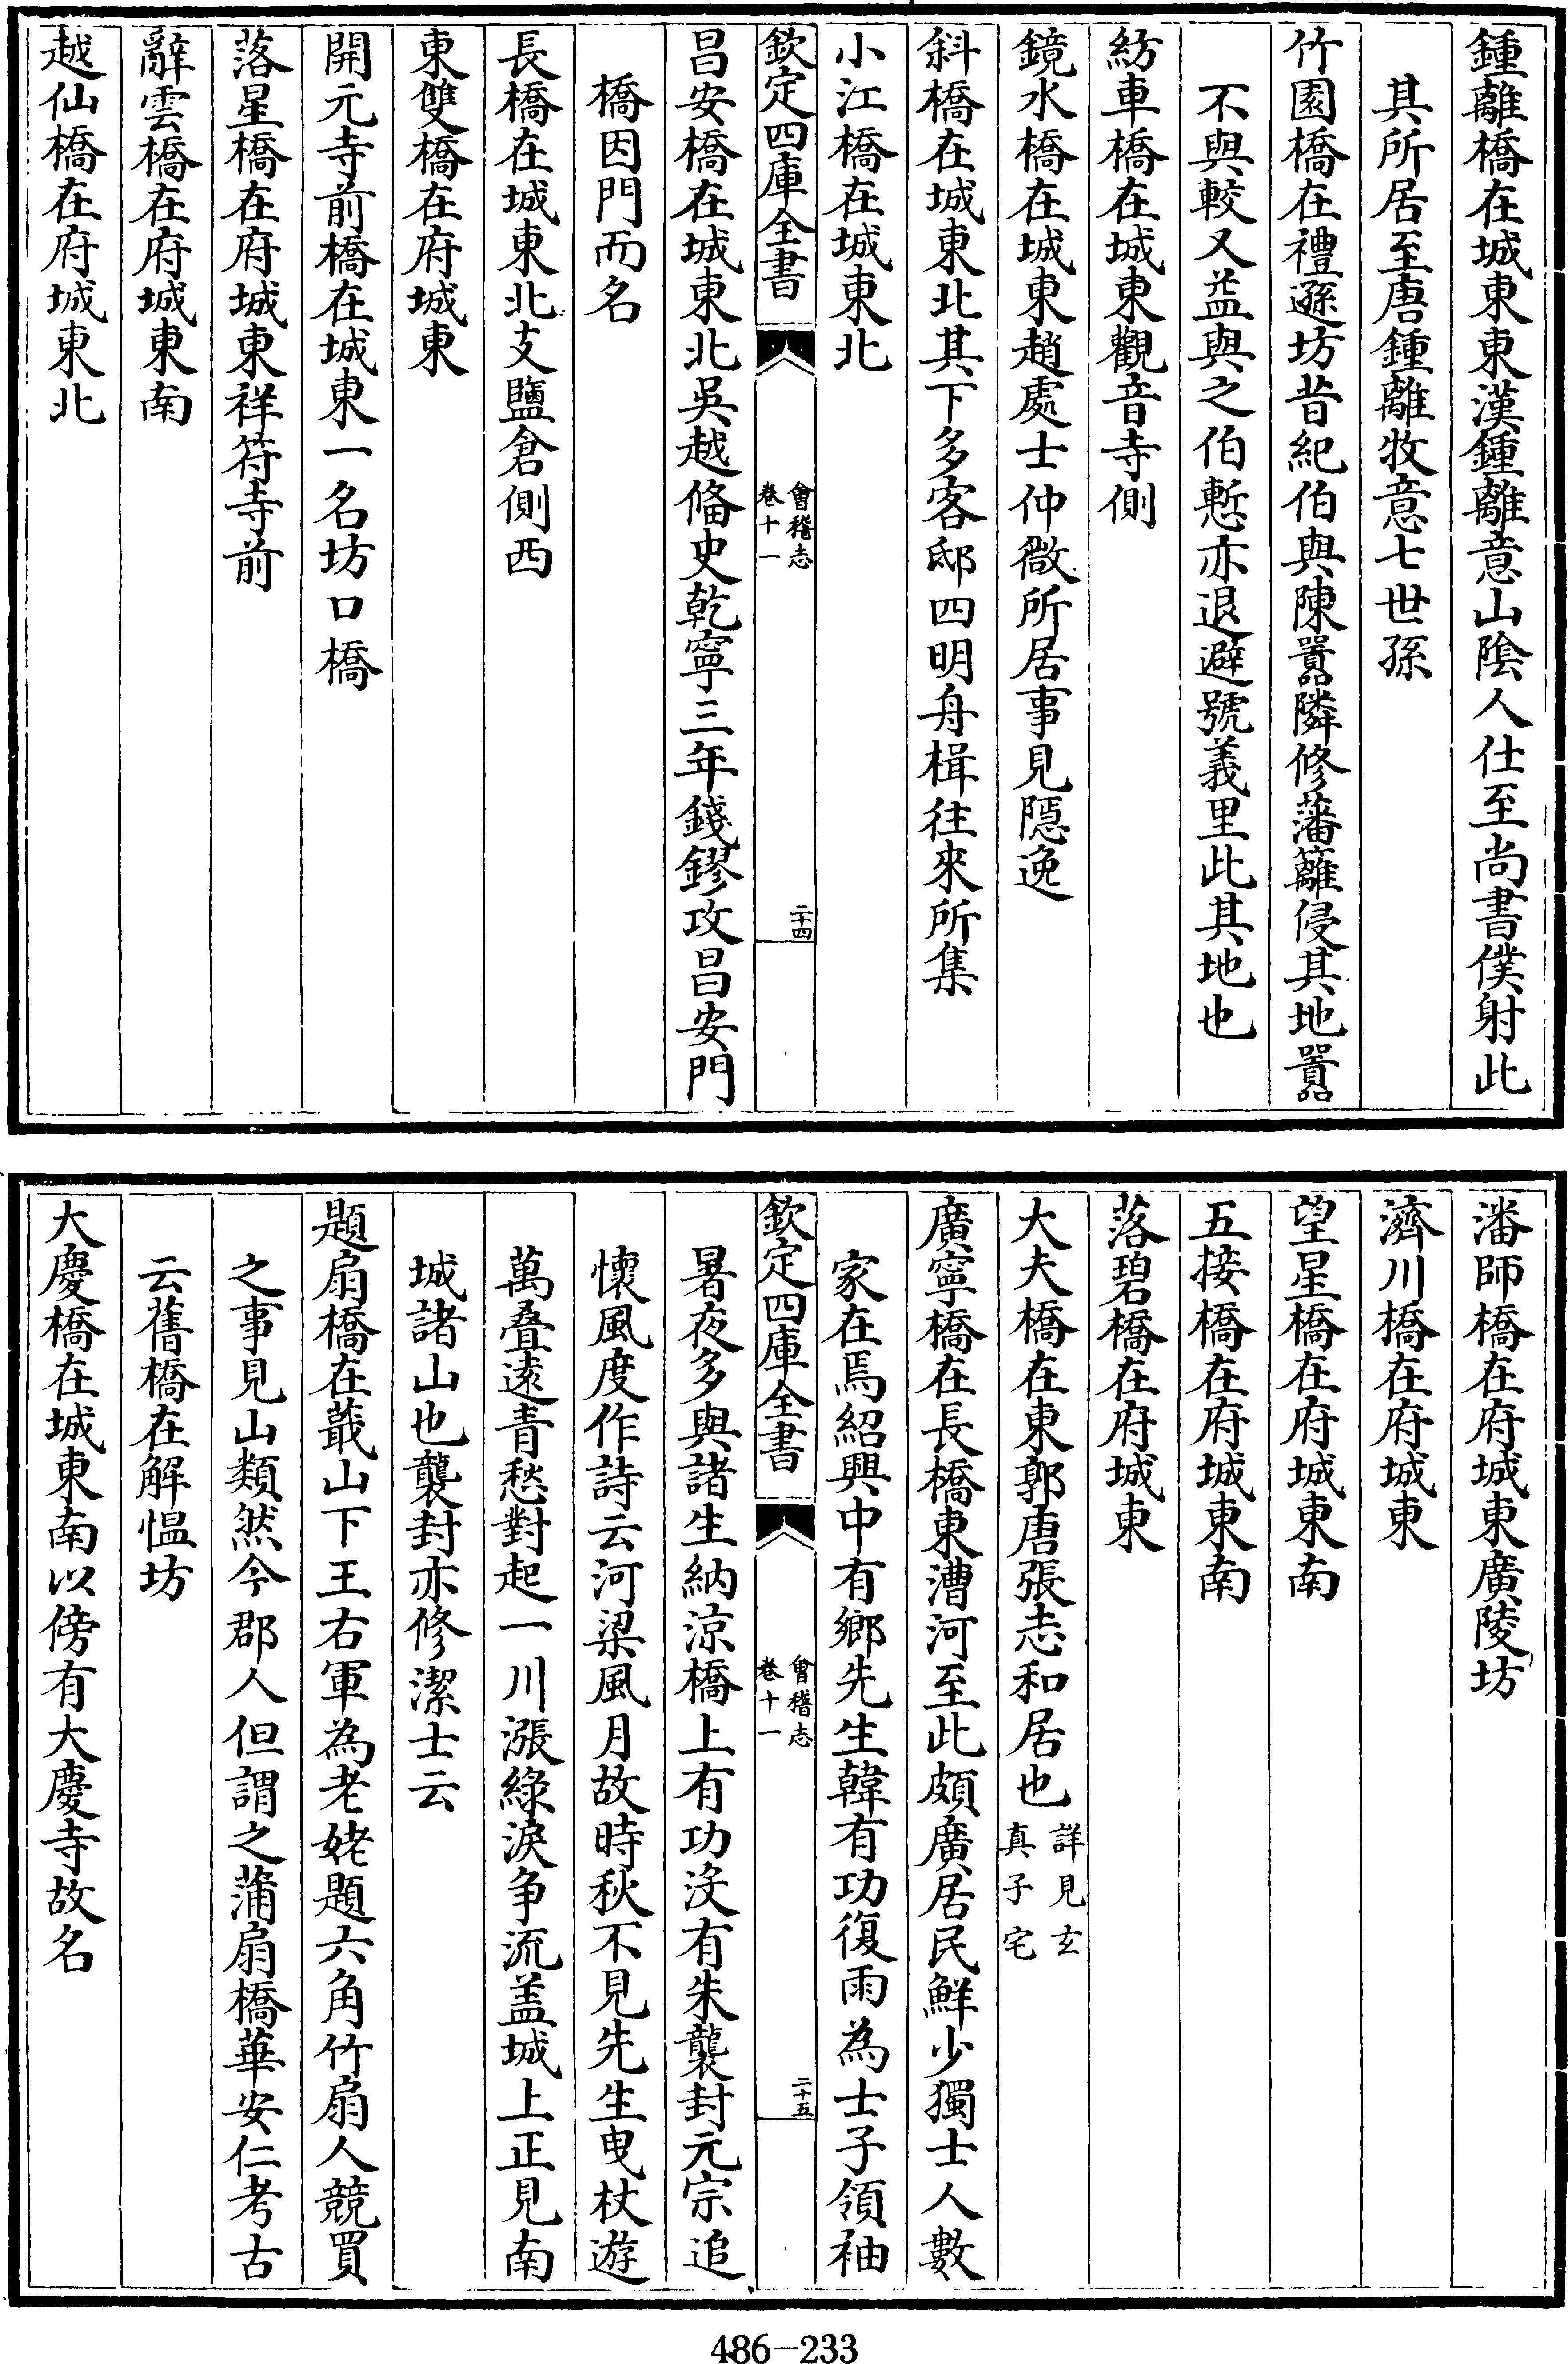 鍾離橋在城東東漢鍾離意山隂人仕至尚書僕射此
其所居至唐鍾離牧意七世孫
竹園橋在禮遜坊昔紀伯與陳囂隣修藩籬侵其地囂
不與較又益與之伯慙亦退避號義里此其地也
紡車橋在城東觀音寺側
鏡水橋在城東趙處士仲微所居事見隠逸
斜橋在城東北其下多客邸四明舟楫往來所集
小江橋在城東北
欽定四庫全書
會稽志
卷十一
二十四
昌安橋在城東北吳越備史乾寧三年錢鏐攻昌安門
橋因門而名
長橋在城東北支鹽倉側西
東雙橋在府城東
開元寺前橋在城東一名坊口橋
落星橋在府城東祥符寺前
辭雲橋在府城東南
越仙橋在府城東北
潘師橋在府城東廣陵坊
濟川橋在府城東
望星橋在府城東南
五接橋在府城東南
落碧橋在府城東
大夫橋在東郭唐張志和居也詳見玄
真子宅
廣寧橋在長橋東漕河至此頗廣居民鮮少獨士人數
家在焉紹興中有鄉先生韓有功復雨為士子領袖
欽定四庫全書
會稽志
卷十一
二十五
暑夜多與諸生納涼橋上有功沒有朱襲封元宗追
懷風度作詩云河梁風月故時秋不見先生曳杖遊
萬叠遠青愁對起一川漲綠淚争流盖城上正見南
城諸山也襲封亦修潔士云
題扇橋在蕺山下王右軍為老姥題六角竹扇人競買
之事見山類然今郡人但謂之蒲扇橋華安仁考古
云舊橋在解愠坊
大慶橋在城東南以傍有大慶寺故名
486-233